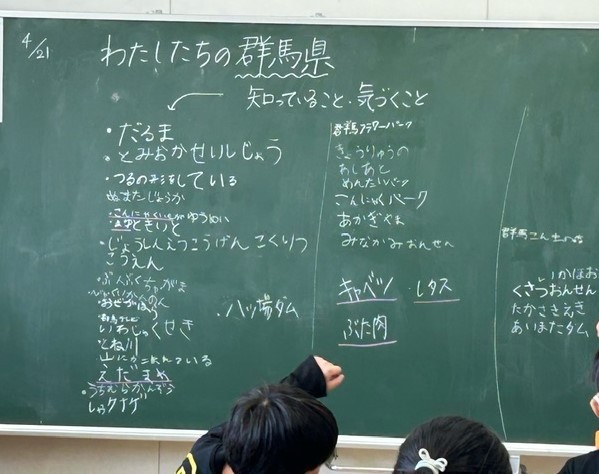 4/21
わたしたちの群馬県
知っていること・気づくこと
・だるま
・とみおかせいしじょう
・つるの形をしている
ぬまたじょうか
・こんにゃくいもがゆうめい
きいと
・じょうしんえつこうげんこくりつ
こうえん
ぶんぶくちゃがま
いわじゅくせき
とね川
山にかこまれている
えだまめ
シャクナゲ
・八ッ場ダム
群馬フラワーパーク
きょうりゅうの
あしあと
めんたいパーク
こんにゃくパーク
あかぎやま
みなかみおんせん
キャベツ
・レタス
ぶた肉
いかほお
くさつおんせん
たかさきえき
あいまたダム